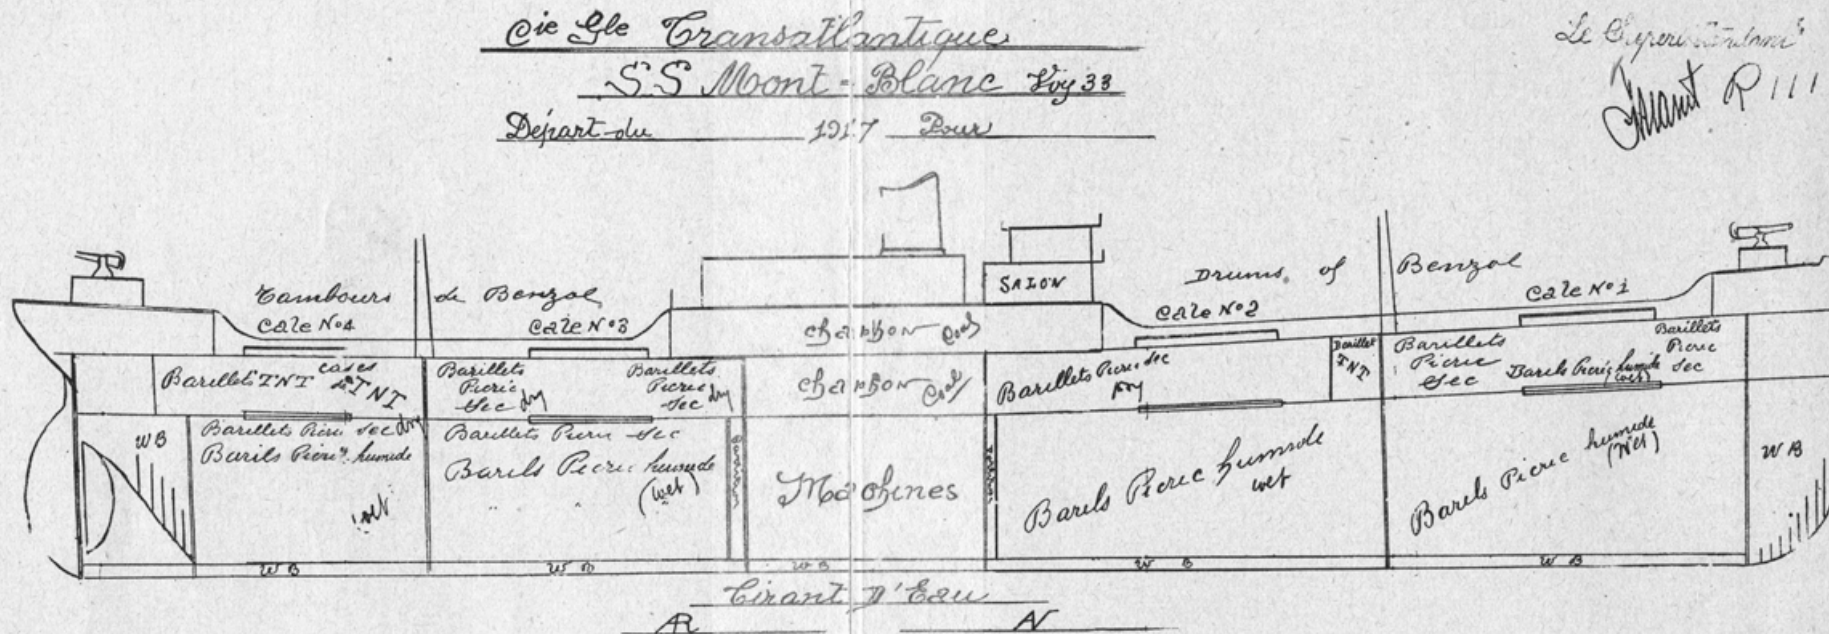 Cie Gle Transatlantique
SS Mont-Blanc Voy 33
Départ du 1917 Pour
Le
Tambours de Benzol
Drums of Benzol
SALON
Cale No 4
Cale No 3
Cale No 2
Cale No 1
Charbon Coal
Barillets TNT
cases TNT
Barillets
Picric
Sec dry
Barillets
Picric
Sec dry
Charbon Coal
Barillets Picric Sec
dry
Barillet
TNT
Barillets
Picric
Sec
Barils Picric humide
(wet)
Barillets
Picric
Sec
WB
Barillets Picric Sec dry
Barils Picric humide
wet
Barillets Picric Sec
Barils Picric humide
(wet)
Machines
Barils Picric humide
wet
Barils Picric humide
(Wet)
WB
WB
WB
WB
WB
WB
Tirant D'Eau
AR AV